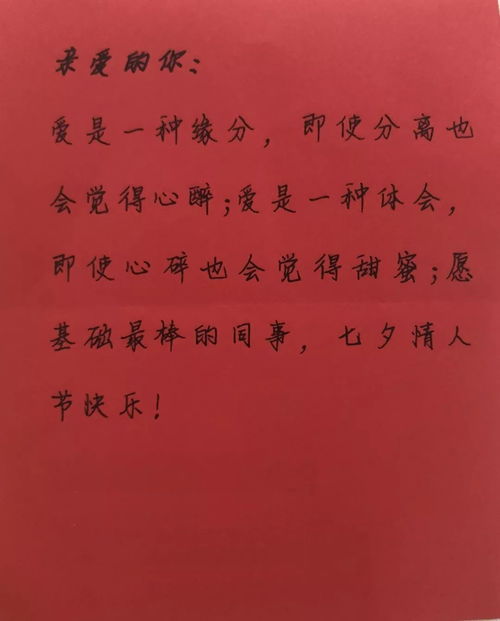 亲爱的你：
爱是一种缘分，即使分离也
会觉得心醉；爱是一种体会，
即使心碎也会觉得甜蜜；愿
基础最棒的同事，七夕情人
节快乐！